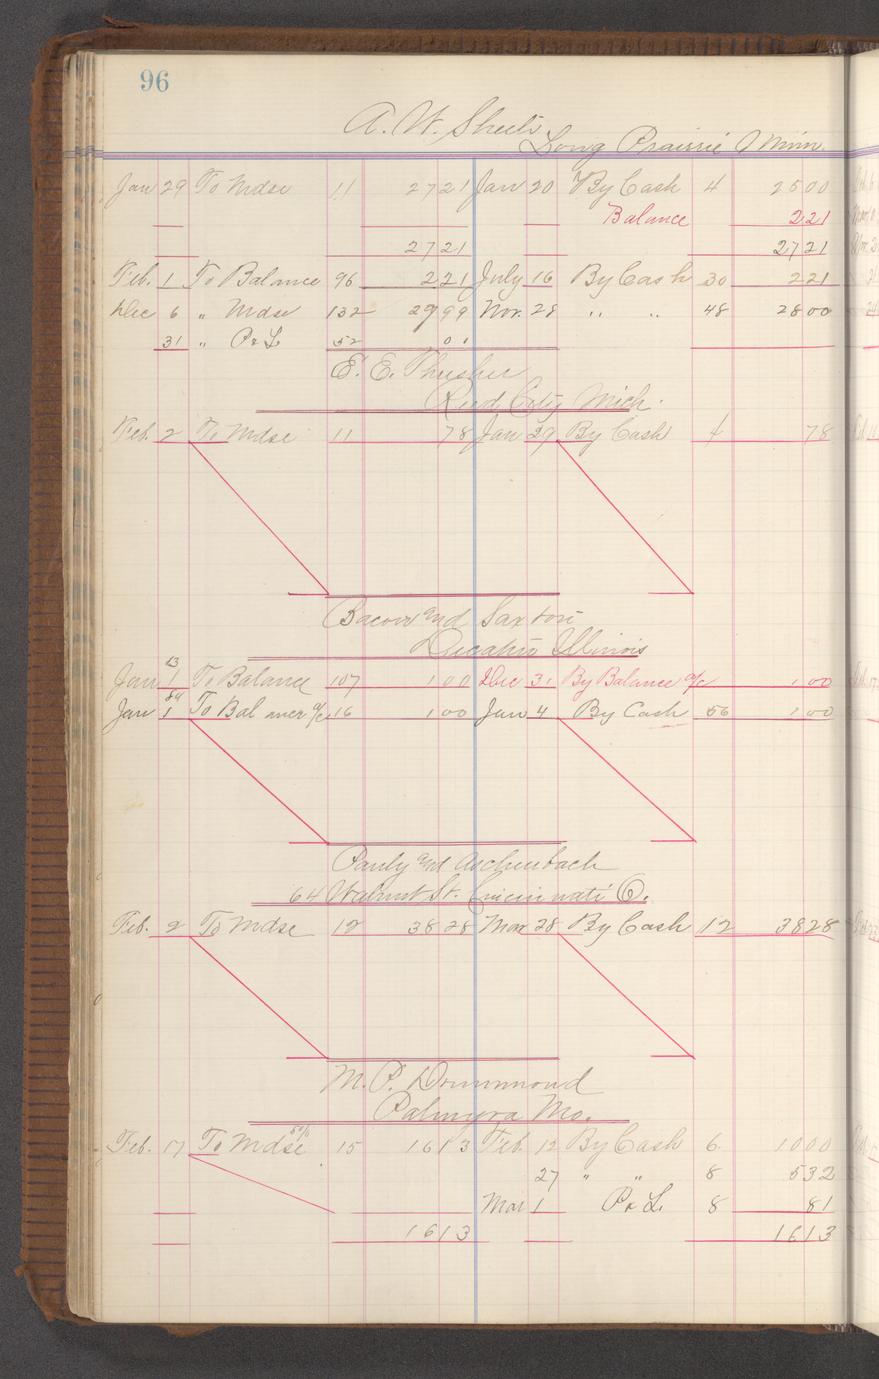 96
A. W. Sheets
Long Prairie Minn.
Jan 29 To Mdse 11 27 21 Jan 20 By Cash 4 25 00
Balance 2 21
27 21 27 21
Feb. 1 To Balance 96 2 21 July 16 By Cash 30 2 21
Dec 6 " Mdse 132 29 99 Nov. 28 " " 48 28 00
31 " P & L 52
E. E. Thusher
Reed City Mich.
Feb. 2 To Mdse 11 78 Jan 29 By Cash 4 78
Bacon and Saxton
Decatur Illinois
Jan 1 To Balance 107 1 00 Dec 31 By Balance a/c 1 00
Jan 1 84 To Balance a/c 16 1 00 Jan 4 By Cash 56 1 00
Pauly and Aschenbach
64 Walnut St. Cincinnati O.
Feb. 2 To Mdse 12 38 28 Mar 28 By Cash 12 38 28
M. P. Drummond
Palmyra Mo.
Feb. 17 To Mdse 15 16 13 Feb. 12 By Cash 6 10 00
27 " " 8 5 32
Mar 1 P & L 8 81
16 13 16 13